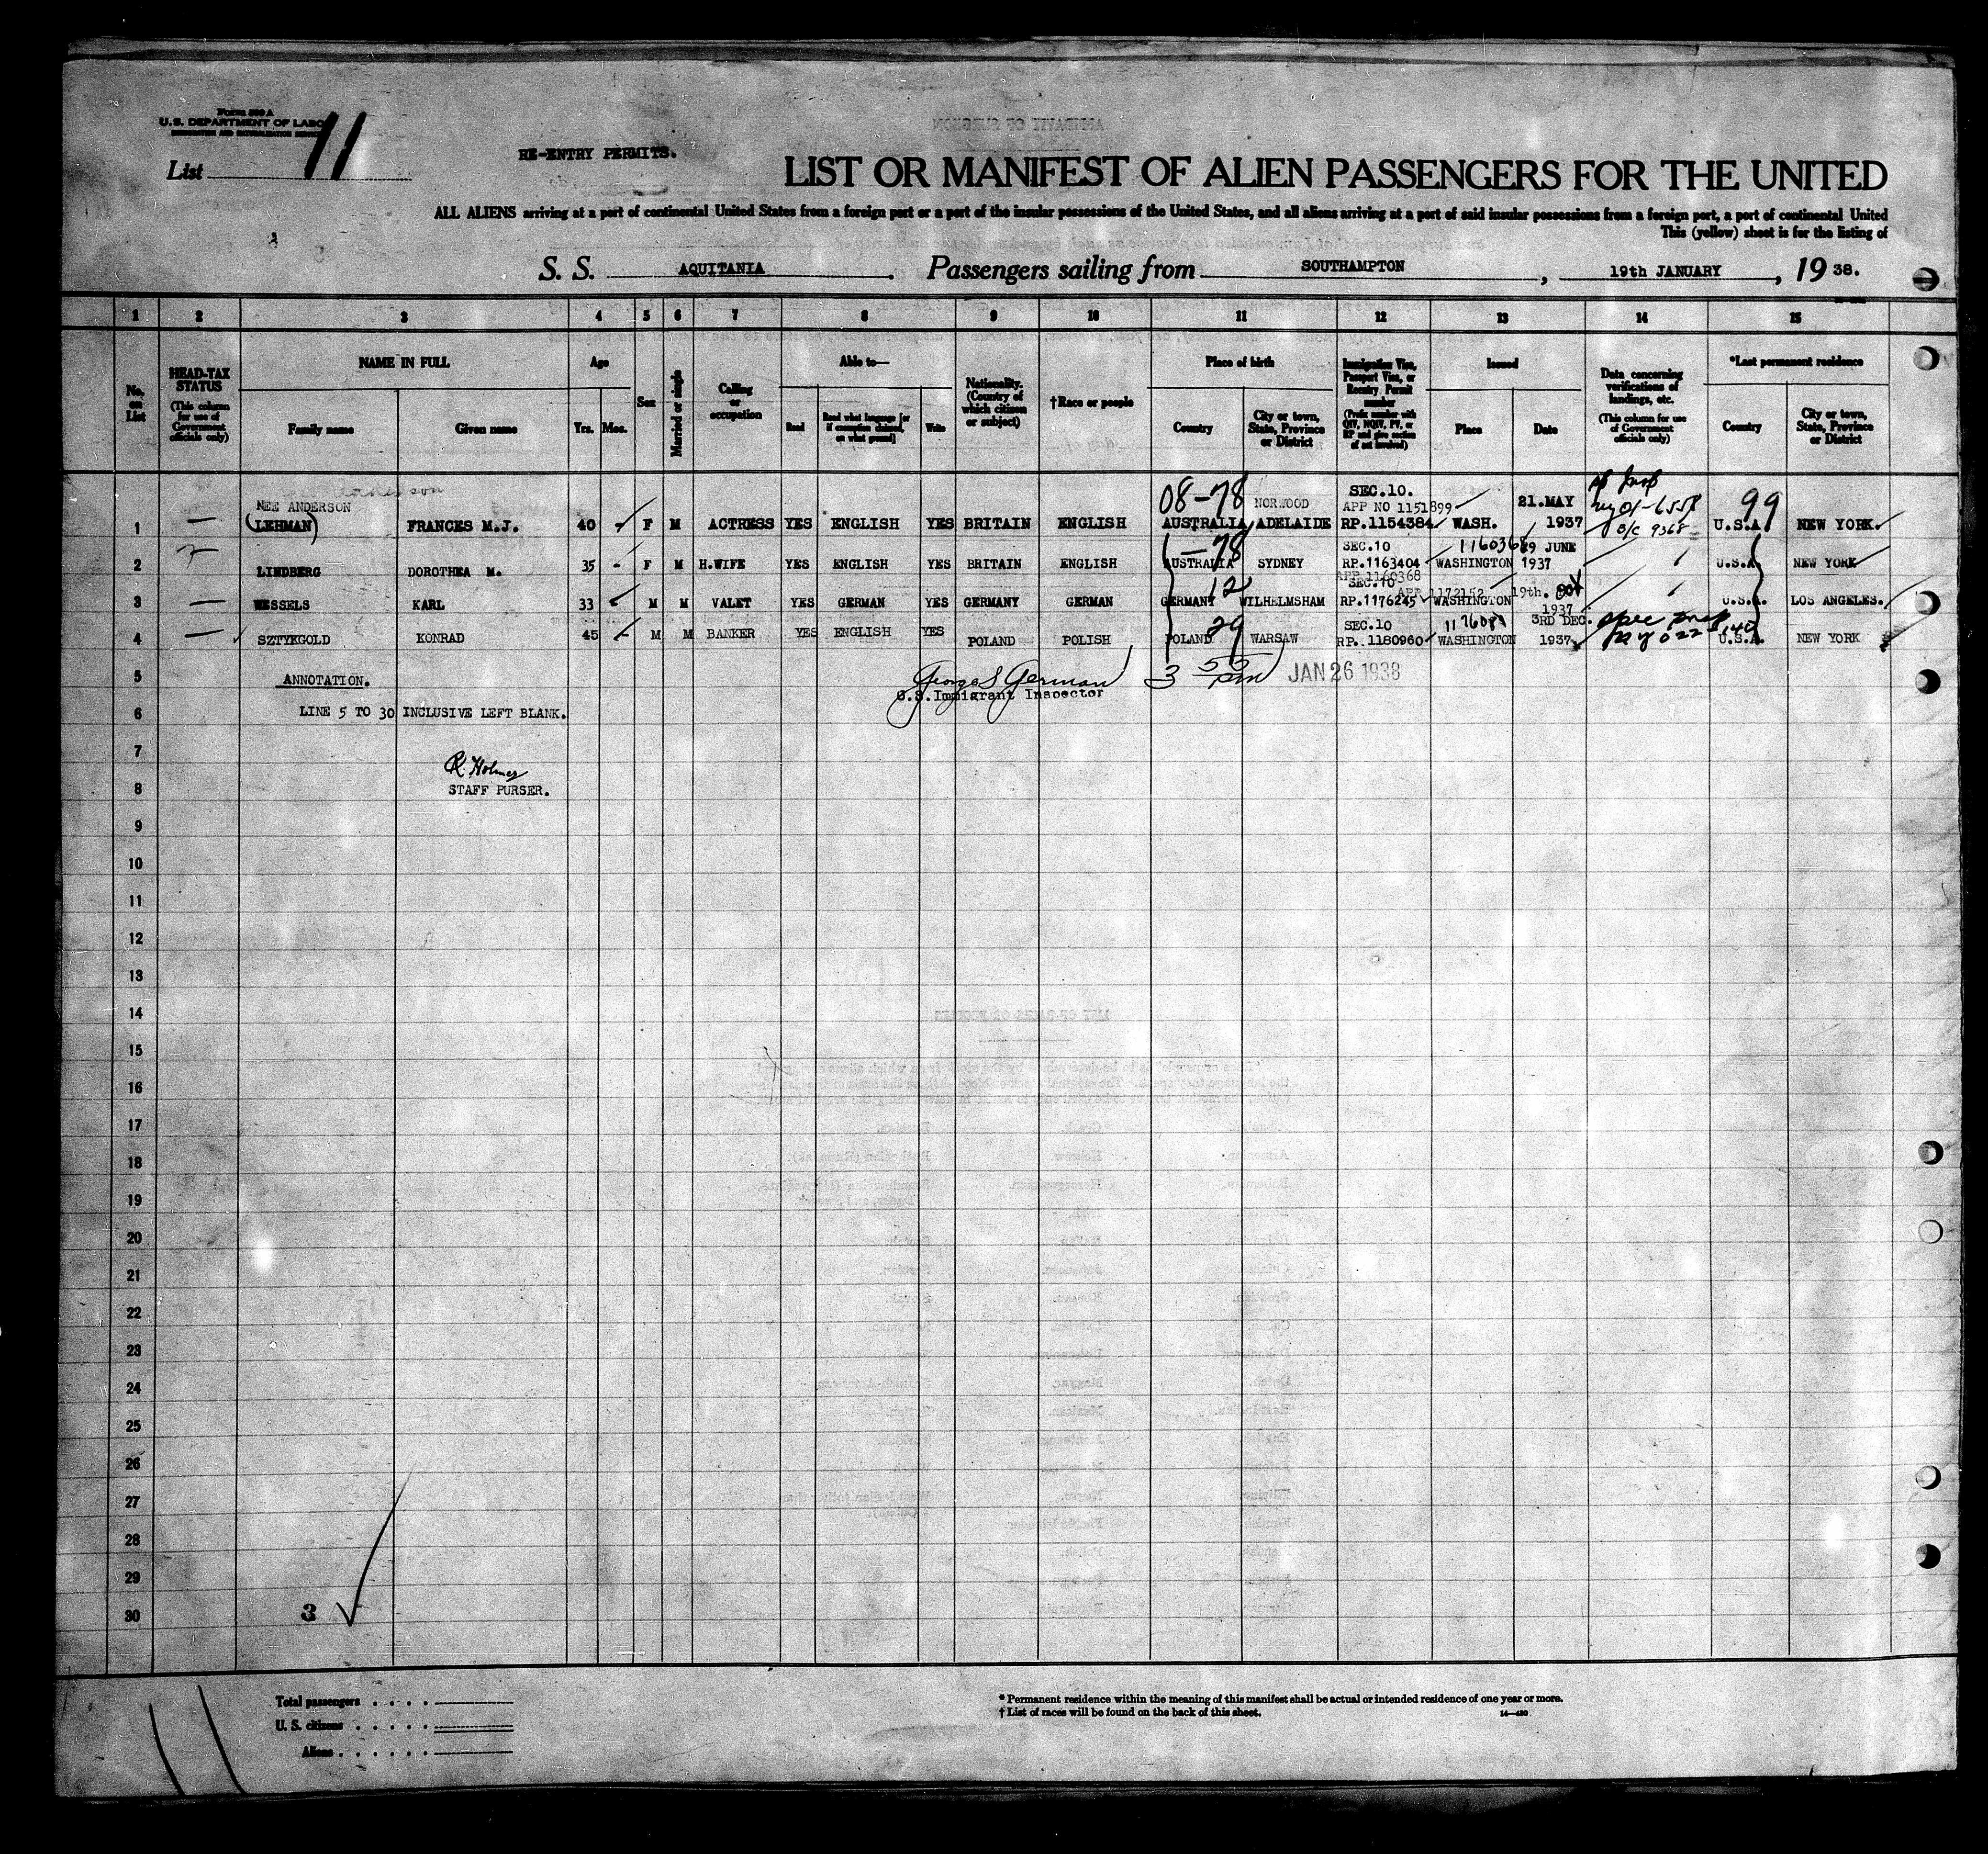 Form 500 A
U.S. DEPARTMENT OF LABOR
IMMIGRATION AND NATURALIZATION SERVICE
List 11
RE-ENTRY PERMITS.
LIST OR MANIFEST OF ALIEN PASSENGERS FOR THE UNITED
ALL ALIENS arriving at a port of continental United States from a foreign port or a port of the insular possessions of the United States, and all aliens arriving at a port of said insular possessions from a foreign port, a port of continental United
This (yellow) sheet is for the listing of
S. S. AQUITANIA . Passengers sailing from SOUTHAMPTON , 19th JANUARY , 19 38.
1 2 3 4 5 6 7 8 9 10 11 12 13 14 15
No. on List
HEAD-TAX STATUS (This column for use of Government officials only)
NAME IN FULL
Family name
Given name
Age
Yrs. Mos.
Sex
Married or single
Calling or occupation
Able to—
Read
Read what language [or if exemption claimed, on what ground]
Write
Nationality. (Country of which citizen or subject)
†Race or people
Place of birth
Country
City or town, State, Province or District
Immigration Visa, Passport Visa, or Reentry Permit number (Prefix number with QIV, NQIV, PV, or RP and give section of act involved)
Issued
Place
Date
Data concerning verifications of landings, etc. (This column for use of Government officials only)
*Last permanent residence
Country
City or town, State, Province or District
NEE ANDERSON 08-78 NORWOOD SEC.10. APP NO 1151899 21.MAY 99
1 — (LEHMAN) FRANCES M.J. 40 F M ACTRESS YES ENGLISH YES BRITAIN ENGLISH AUSTRALIA ADELAIDE RP.1154384 WASH. 1937 U.S.A. NEW YORK.
-78 SEC.10 1160368 JUNE
2 LINDBERG DOROTHEA M. 35 - F M H.WIFE YES ENGLISH YES BRITAIN ENGLISH AUSTRALIA SYDNEY RP.1163404 WASHINGTON 1937 U.S.A. NEW YORK
APP 1160368
12 SEC.10 APP 1172152 19th. Oct
3 — WESSELS KARL 33 M M VALET YES GERMAN YES GERMANY GERMAN GERMANY WILHELMSHAM RP.1176245 WASHINGTON 1937 U.S.A. LOS ANGELES.
29 SEC.10 3RD DEC. spec insp
4 — SZTYKGOLD KONRAD 45 - M M BANKER YES ENGLISH YES POLAND POLISH POLAND WARSAW RP.1180960 WASHINGTON 1937 U.S.A. NEW YORK
5 ANNOTATION. George S German 3 55 pm JAN 26 1938
U.S.Immigrant Inspector
6 LINE 5 TO 30 INCLUSIVE LEFT BLANK.
7 R. Holmes
8 STAFF PURSER.
9
10
11
12
13
14
15
16
17
18
19
20
21
22
23
24
25
26
27
28
29
30 3
Total passengers . . . .
U. S. citizens . . . . .
Aliens . . . . . .
* Permanent residence within the meaning of this manifest shall be actual or intended residence of one year or more.
† List of races will be found on the back of this sheet.
14—430